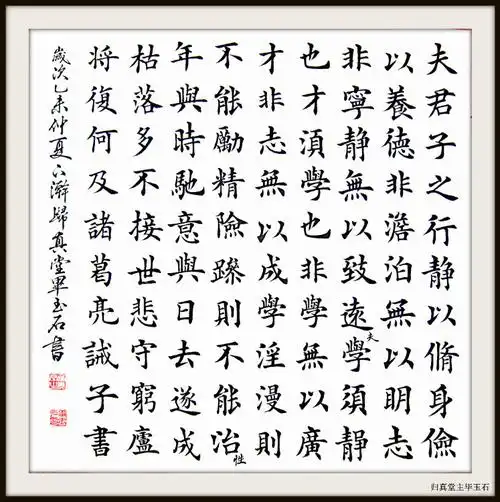 夫君子之行靜以脩身儉
以養德非澹泊無以明志
非寧靜無以致遠夫學須靜
也才湏學也非學無以廣
才非志無以成學淫漫則
不能勵精險躁則不能治性
年與時馳意與日去遂成
枯落多不接世悲守窮廬
將復何及諸葛亮誡子書
歲次乙未仲夏下澣歸真堂畢玉石書
归真堂主毕玉石